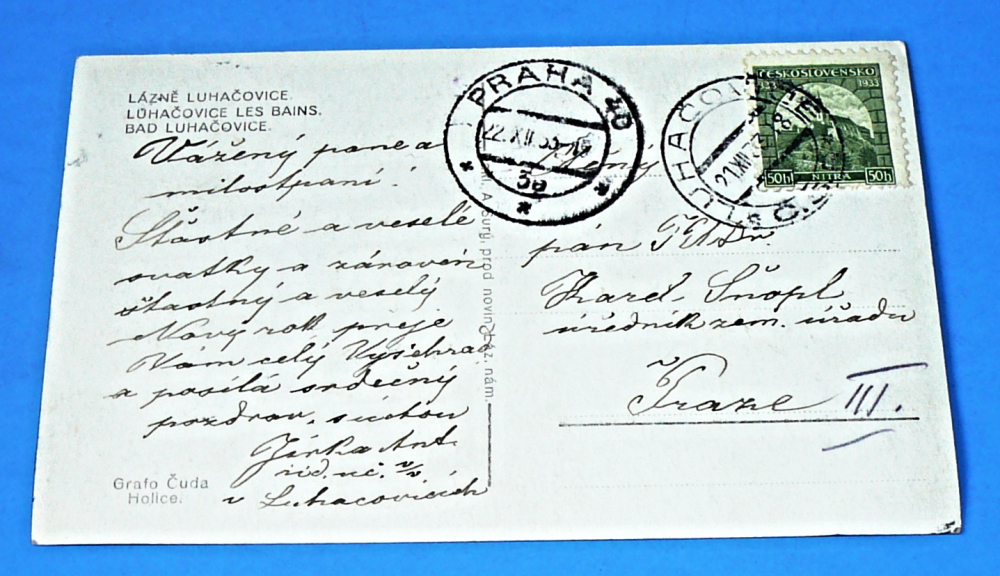 LÁZNĚ LUHAČOVICE.
LUHAČOVICE LES BAINS.
BAD LUHAČOVICE.
Vážený pane a
milostpaní!
Šťastné a veselé
svatky a zároveň
šťastný a veselý
Nový rok přeje
Vám celý Vyšehrad
a posílá srdečný
pozdrav, s úctou
Jirka Ant.
říd. uč. v/v
v Luhacovicích
Grafo Čuda
Holice.
A. Šurý, prod novin Láz. nám.
PRAHA 10
22.XII.35
3a
LUHAČOVICE
21.XII.35
ČESKOSLOVENSKO
1933
50h NITRA 50h
pán
Karel Šnopl
úředník zem. úřadu
v Praze III.